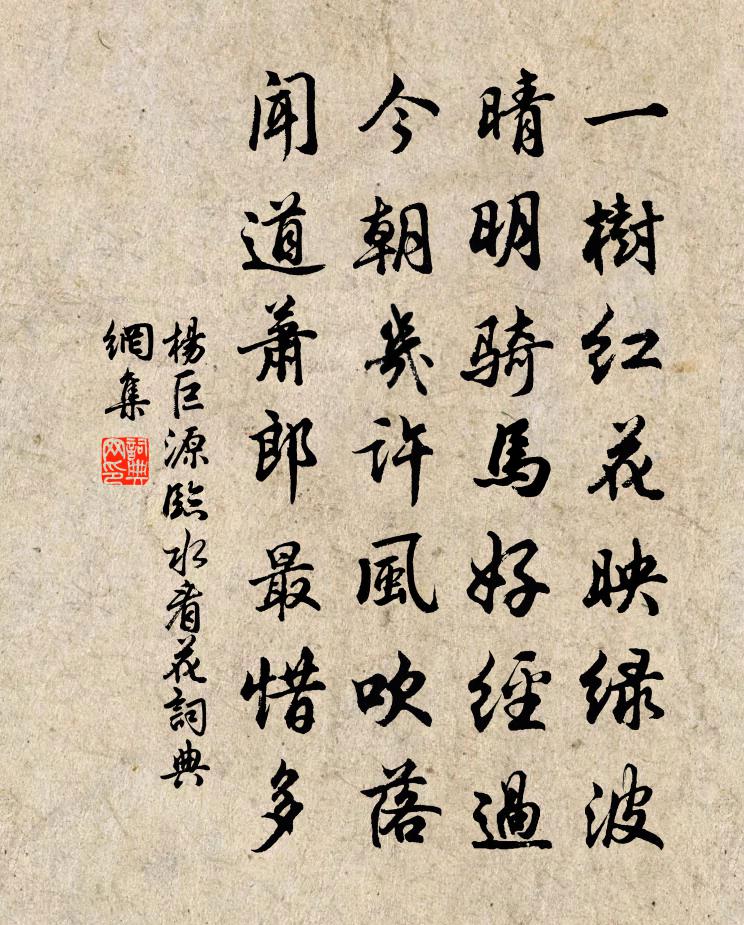 一樹紅花映綠波
晴明騎馬好經過
今朝幾許風吹落
聞道蕭郎最惜多
楊巨源臨水看花詞典
網集
詞典網印